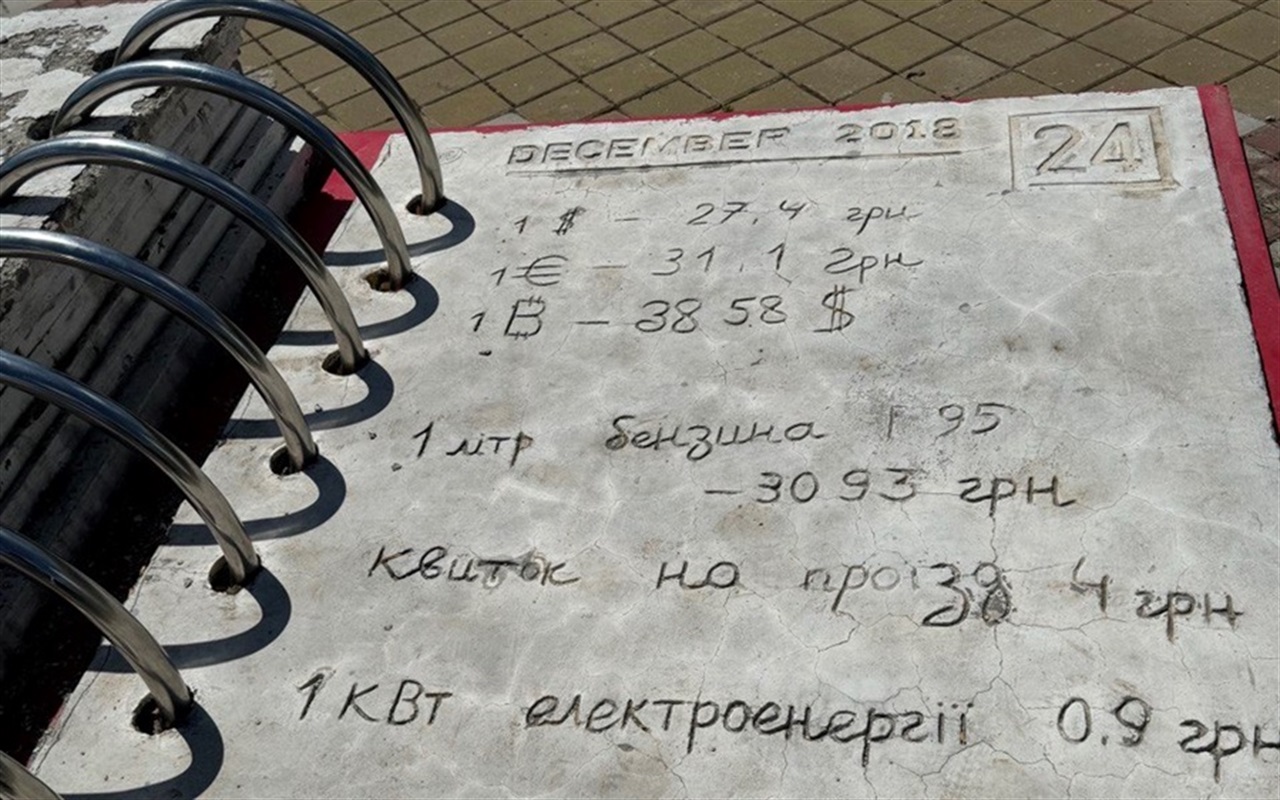 DECEMBER 2018 24
1 $ – 27.4 грн
1 € – 31.1 грн
1 ₿ – 3858 $
1 літр бензина А 95
– 30 93 грн
квиток на проїзд 4 грн
1 КВт електроенергії 0.9 грн